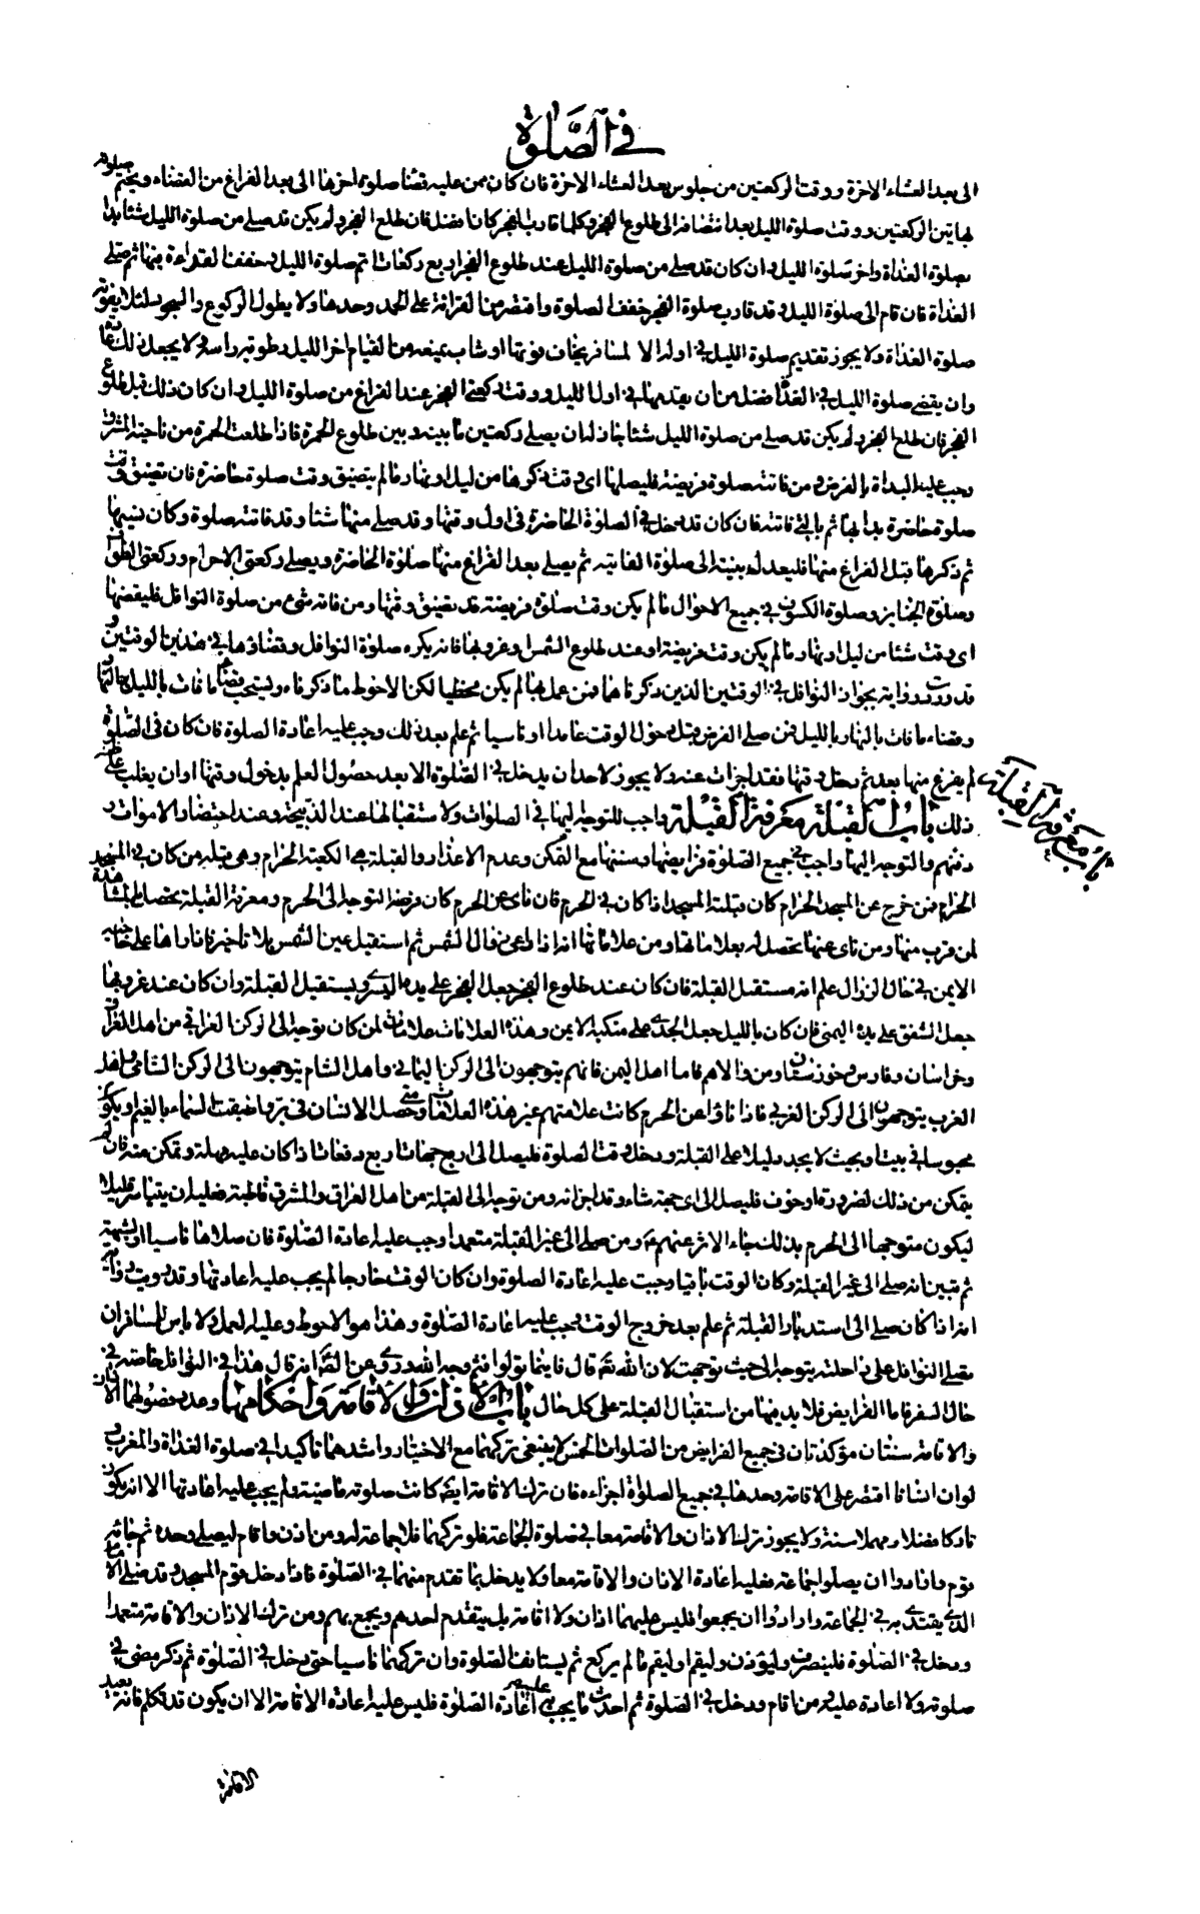 في الصلوة
الى بعد العشاء الاخرة ووقت الركعتين من جلوس بعد العشاء الاخرة فان كان ممن عليه قضاء صلوة اخرها الى بعد الفراغ من القضاء ويختم صلوته
بهاتين الركعتين ووقت صلوة الليل بعد انتصافه الى طلوع الفجر وكلما قارب الفجر كان افضل فان طلع الفجر ولم يكن قد صلى من صلوة الليل شئا بدا
بصلوة الغداة واخر صلوة الليل وان كان قد صلى من صلوة الليل عند طلوع الفجر اربع ركعات اتم صلوة الليل وخفف القراءة فيها ثم صلى
الغداة فان قام الى صلوة الليل وقد قارب صلوة الفجر خفف الصلوة واقتصر من القراءة على الحمد وحدها ولا يطول الركوع والسجود لئلا يفوته
صلوة الغداة ولا يجوز تقديم صلوة الليل في اوله الا لمسافر يخاف فوتها او شاب يمنعه من القيام اخر الليل رطوبة راسه ولا يجعل ذلك عادة
وان يقضى صلوة الليل في الغد افضل من ان يقدمها في اول الليل ووقت ركعتي الفجر عند الفراغ من صلوة الليل وان كان ذلك قبل طلوع
الفجر فان طلع الفجر ولم يكن قد صلى من صلوة الليل شئا جاز له ان يصلى ركعتين ما بينه وبين طلوع الحمرة فاذا طلعت الحمرة من ناحية المشرق
وجب عليه البداة بالفرض ومن فاتته صلوة فريضة فليصلها اى وقت ذكرها من ليل او نهار ما لم يتضيق وقت صلوة حاضرة فان تضيق وقت
صلوة حاضرة بدا بها ثم بالتي فاتته فان كان قد دخل في الصلوة الحاضرة في اول وقتها وقد صلى منها شئا وقد فاتته صلوة وكان نسيها
ثم ذكرها قبل الفراغ منها فليعدل بنيته الى صلوة الفائتة ثم يصلى بعد الفراغ منها صلوة الحاضرة ويصلى ركعتي الاحرام وركعتي الطواف
وصلوة الجنايز وصلوة الكسوف في جميع الاحوال ما لم يكن وقت صلوة فريضة قد تضيق وقتها ومن فاته شئ من صلوة النوافل فليقضها
اى وقت شئا من ليل او نهار ما لم يكن وقت فريضة او عند طلوع الشمس وغروبها فانه يكره صلوة النوافل وقضاؤها في هذين الوقتين و
قد وردت رواية بجواز النوافل في الوقتين الذين ذكرناهما فمن عمل بها لم يكن مخطيا لكن الاحوط ما ذكرناه ويستحب قضاء ما فات بالليل بالنهار
وقضاء ما فات بالنهار بالليل فمن صلى الفرض قبل دخول الوقت عامدا او ناسيا ثم علم بعد ذلك وجب عليه اعادة الصلوة فان كان في الصلوة
لم يفرغ منها بعد ثم دخل وقتها فقد اجزات عنه ولا يجوز لاحد ان يدخل في الصلوة الا بعد حصول العلم بدخول وقتها او ان يغلب على ظنه
ذلك باب القبلة معرفة القبلة واجب للتوجه اليها في الصلوات ولاستقبالها عند الذبيحة وعند احتضار الاموات و
باب معرفة القبلة
دفنهم والتوجه اليها واجب في جميع الصلوة فرايضها وسننها مع التمكن وعدم الاعذار والقبلة هي الكعبة الحرام وهي قبلة من كان في المسجد
الحرام فمن خرج عن المسجد الحرام كان قبلته المسجد اذا كان في الحرم فان ناى عن الحرم كان فرضه التوجه الى الحرم ومعرفة القبلة يحصل بالمشاهدة
لمن قرب منها ومن ناى عنها تحصل له بعلاماتها ومن علاماتها انه اذا راعى زوال الشمس ثم استقبل عين الشمس بلا تاخير فاذا راها على حاجبه
الايمن في حال الزوال علم انه مستقبل القبلة فان كان عند طلوع الفجر جعل الفجر على يده اليسرى ويستقبل القبلة وان كان عند غروبها
جعل الشفق على يده اليمنى فان كان بالليل جعل الجدى على منكبه الايمن وهذه العلامات علامات لمن كان توجه الى الركن العراقي من اهل العراق
وخراسان وفارس وخوزستان ومن والاهم فاما اهل اليمن فانهم يتوجهون الى الركن اليماني واهل الشام يتوجهون الى الركن الشامي واهل
الغرب يتوجهون الى الركن الغربي فاذا ناؤا عن الحرم كانت علامتهم غير هذه العلامات ومتى حصل الانسان في بر واطبقت السماء بالغيم او يكون
محبوسا في بيت او بحيث لا يجد دليلا على القبلة ودخل وقت الصلوة فليصل الى اربع جهات اربع دفعات اذا كان عليه مهلة وتمكن منه فان لم
يتمكن من ذلك لضرورة او خوف فليصل الى اى جهة شاء وقد اجزاته ومن توجه الى القبلة من اهل العراق والمشرق قاطبة فعليه ان يتياسر قليلا
ليكون متوجها الى الحرم بذلك جاء الاثر عنهم ع ومن صلى الى غير القبلة متعمدا وجب عليه اعادة الصلوة فان صلاها ناسيا او لشبهة
ثم تبين انه صلى الى غير القبلة وكان الوقت باقيا وجبت عليه اعادة الصلوة وان كان الوقت خارجا لم يجب عليه اعادتها وقد رويت رواية
انه اذا كان صلى الى استدبار القبلة ثم علم بعد خروج الوقت وجب عليه اعادة الصلوة وهذا هو الاحوط وعليه العمل ولا باس للمسافر ان
يصلى النوافل على راحلته يتوجه الى حيث توجهت لان الله تعالى قال فاينما تولوا فثم وجه الله وروى عن الصادق انه قال هذا في النوافل خاصة في
حال السفر فاما الفرايض فلا بد فيها من استقبال القبلة على كل حال باب الاذان والاقامة واحكامهما وعدد فصولهما الاذان
والاقامة سنتان مؤكدتان في جميع الفرايض من الصلوات الخمس لا ينبغي تركهما مع الاختيار واشدهما تاكيدا في صلوة الغداة والمغرب و
لو ان انسانا اقتصر على الاقامة وحدها في جميع الصلوة اجزاءه فان ترك الاقامة ايضا كانت صلوته ماضية ولم يجب عليه اعادتها الا انه يكون
تاركا فضلا ومهملا سنة ولا يجوز ترك الاذان والاقامة معا في صلوة الجماعة فلو تركهما فلا جماعة له ومن اذن واقام ليصلى وحده ثم جائه
قوم وارادوا ان يصلوا جماعة فعليه اعادة الاذان والاقامة معا ولا يدخل بما تقدم منهما في الصلوة فاذا دخل قوم المسجد وقد صلى الامام
الذى يقتدى به في الجماعة وارادوا ان يجمعوا فليس عليهما اذان ولا اقامة بل يتقدم احدهم ويجمع بهم ومن ترك الاذان والاقامة متعمدا
ودخل في الصلوة فلينصرف وليؤذن وليقم او ليقم ما لم يركع ثم يستانف الصلوة وان تركهما ناسيا حتى دخل في الصلوة ثم ذكر مضى في
صلوته ولا اعادة عليه ومن اقام ودخل في الصلوة ثم احدث ما يجب عليه به اعادة الصلوة فليس عليه اعادة الاقامة الا ان يكون قد تكلم فانه يعيد
الاقامة